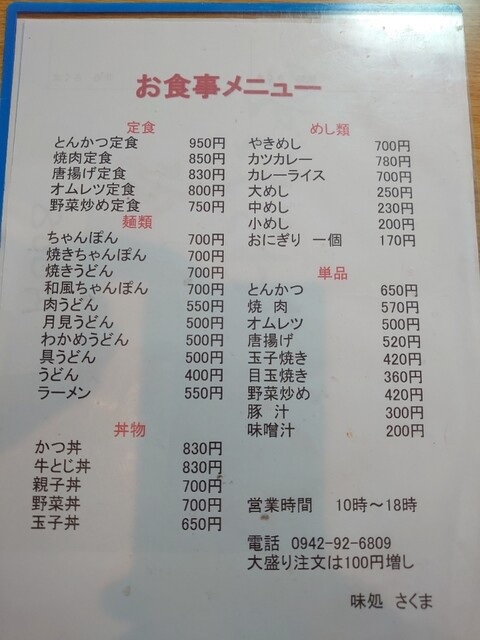 お食事メニュー
定食
とんかつ定食 950円
焼肉定食 850円
唐揚げ定食 830円
オムレツ定食 800円
野菜炒め定食 750円
麺類
ちゃんぽん 700円
焼きちゃんぽん 700円
焼きうどん 700円
和風ちゃんぽん 700円
肉うどん 550円
月見うどん 500円
わかめうどん 500円
具うどん 500円
うどん 400円
ラーメン 550円
丼物
かつ丼 830円
牛とじ丼 830円
親子丼 700円
野菜丼 700円
玉子丼 650円
めし類
やきめし 700円
カツカレー 780円
カレーライス 700円
大めし 250円
中めし 230円
小めし 200円
おにぎり 一個 170円
単品
とんかつ 650円
焼 肉 570円
オムレツ 500円
唐揚げ 520円
玉子焼き 420円
目玉焼き 360円
野菜炒め 420円
豚 汁 300円
味噌汁 200円
営業時間 10時～18時
電話 0942-92-6809
大盛り注文は100円増し
味処 さくま